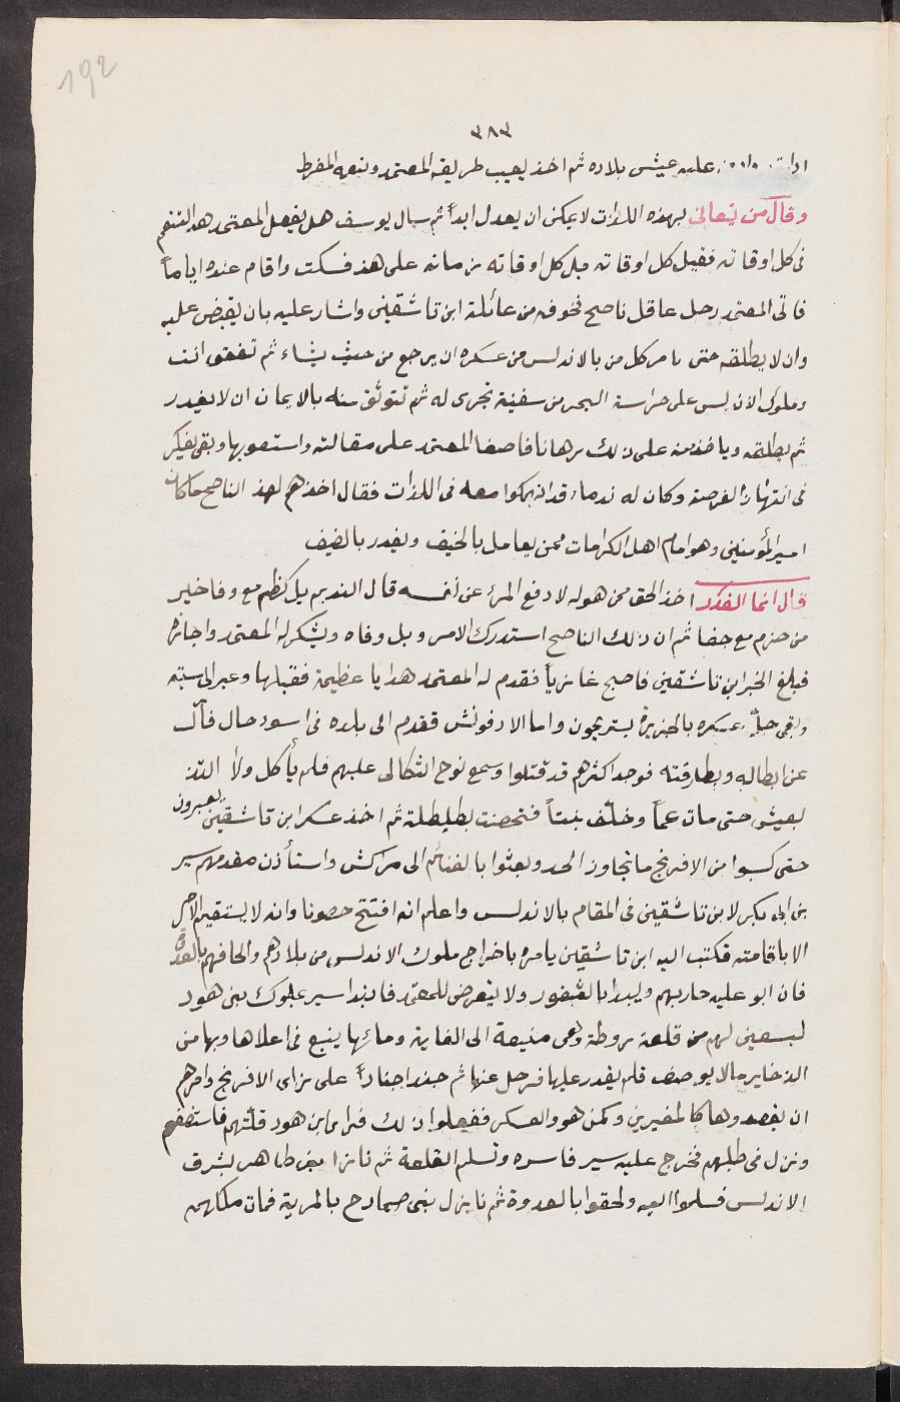 192
٣٨٣
عليه عيش بلاده ثم اخذ يعيب طريقة المعتمد وتنعمه المفرط
وقال من يتعانى بهذه اللذات لا يمكن ان يعدل ابداً ثم سال يوسف هل يفعل المعتمد هذا التنعم
فى كل اوقاته فقيل كل اوقاته قبل كل اوقاته من مانه على هذ فسكت واقام عنده اياماً
فاتى المعتمد رجل عاقل ناصح نخوفه من عائلة ابن تاشقين واشار عليه بان يقبض عليه
وان لا يطلقه حتى يامر كل من بالاندلس من عسكره ان يرجع من حيث يشاء ثم تتفق انت
وملوك الاندلس على حراسة البحر من سفينة تجرى له ثم تتوثق منه بالايمان ان لا يغدر
ثم يطلقه وياخذ منه على ذلك رهانا فاصغا المعتمد على مقالته واستصوبها وبقى يفكر
فى انتهاز الفرصة وكان له ندماء قد انهمكوا معه فى اللذات فقال احدهم لهذ الناصح ماكان
امير المؤمنين وهو امام اهل الكرامات ممن يعامل بالحيف ويغدر بالضيف
قال انما الغدر اخذ الحق ممن هو له لا دفع المرء عن نفسه قال النديم بل كظم مع وفا خير
من حزم مع جفا ثم ان ذلك الناصح استدرك الامر وبل وفاه ويشكر له المعتمد واجازه
فبلغ الخبر ابن تاشقين فاصبح غازياً فقدم له المعتمد هدايا عظيمة فقبلها وعبر الى سبته
وبقى جلّ عسكره بالجزيرة يستريحون واما الادفونش فقدم الى بلده فى اسوء حال فسأل
عن ابطاله وبطارقته فوجد اكثرهم قد قتلوا وسمع نوح الثكالى عليهم فلم يأكل ولا التذ
بعيش حتى مات غماً وخلّف بنتاً فتحصنت بطليطلة ثم اخذ عسكر ابن تاشقين يعبرون
حتى كسبوا من الافرنج ما تجاوز الحد وبعثوا بالغنائم الى مراكش واستأذن مقدمهم سير
بن ابى بكر لابن تاشقين فى المقام بالاندلس واعلم انه افتتح حصونا وانه لا يستقيم الامر
الا باقامته فكتب اليه ابن تاشقين يامره باخراج ملوك الاندلس من بلادهم والحاقهم بالعدوة
فان ابو عليه حاربهم وليبدا بالثغور ولا يتعرض للمعتمد فابتدا سير بملوك بنى هود
لهم من قلعة روطة وهى منيعة الى الغاية ومائها ينبع فى اعلاها وبها من
الذخاير مالا يوصف فلم يقدر عليها فرحل عنها ثم جند اجناداً على زاى الافرنج وامرهم
ان يقصدوها كالمغيرين وكمن هو والعسكر ففعلوا ذلك فراى ابن هود قلتهم فاستضعفهم
ونزل فى طلبهم فخرج عليه سير فاسره وتسلم القلعة ثم نازل بنى طاهر بشرق
الاندلس فسلموا اليه ولحقوا بالعدوة ثم نايزل بنى صمادح بالمرية فمات ملكهم